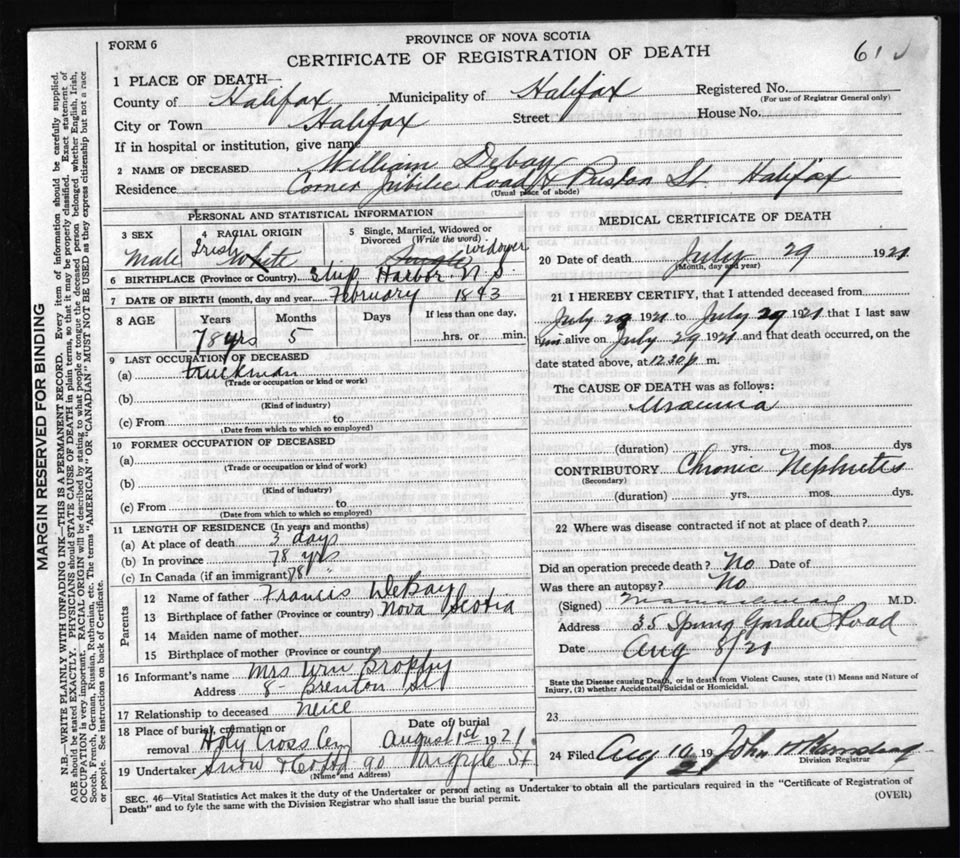 FORM 6
PROVINCE OF NOVA SCOTIA
CERTIFICATE OF REGISTRATION OF DEATH
1 PLACE OF DEATH—
County of Halifax Municipality of Halifax Registered No.
(For use of Registrar General only)
City or Town Halifax Street House No.
If in hospital or institution, give name
2 NAME OF DECEASED William Debay
Residence Corner Jubilee Road & Preston St. Halifax
(Usual place of abode)
PERSONAL AND STATISTICAL INFORMATION
3 SEX Male
4 RACIAL ORIGIN Irish White
5 Single, Married, Widowed or Divorced (Write the word) Single widower
6 BIRTHPLACE (Province or Country) Ship Harbor. N.S.
7 DATE OF BIRTH (month, day and year) February 1843
8 AGE Years Months Days If less than one day,
78 yrs 5 hrs. or min.
9 LAST OCCUPATION OF DECEASED
(a) truckman
(Trade or occupation or kind or work)
(b)
(Kind of industry)
(c) From to
(Date from which to which so employed)
10 FORMER OCCUPATION OF DECEASED
(a)
(Trade or occupation or kind of work)
(b)
(Kind of industry)
(c) From to
(Date from which to which so employed)
11 LENGTH OF RESIDENCE (In years and months)
(a) At place of death 3 days
(b) In province 78 yrs
(c) In Canada (if an immigrant) 78 "
Parents
12 Name of father Francis DeBay
13 Birthplace of father (Province or country) Nova Scotia
14 Maiden name of mother
15 Birthplace of mother (Province or country)
16 Informant's name Mrs Wm Brophy
Address 8- Brenton St
17 Relationship to deceased Neice
18 Place of burial, cremation or removal Holy Cross Cem Date of burial August 1st 1921
19 Undertaker Snow & Co Ltd 90 Argyle St
(Name and Address)
MEDICAL CERTIFICATE OF DEATH
20 Date of death July 29 1921
(Month, day and year)
21 I HEREBY CERTIFY, that I attended deceased from
July 29 1921 to July 29 1921 that I last saw
him alive on July 29 1921 and that death occurred, on the
date stated above, at 12.30 p. m.
The CAUSE OF DEATH was as follows:
Uraemia
(duration) yrs. mos. dys
CONTRIBUTORY Chronic Nephritis
(Secondary)
(duration) yrs. mos. dys.
22 Where was disease contracted if not at place of death?
Did an operation precede death? No Date of
Was there an autopsy? No
(Signed) M.D.
Address 35 Spring Garden Road
Date Aug 8/21
State the Disease causing Death, or in death from Violent Causes, state (1) Means and Nature of
Injury, (2) whether Accidental, Suicidal or Homicidal.
23
24 Filed Aug 10 1921 John
Division Registrar
SEC. 46—Vital Statistics Act makes it the duty of the Undertaker or person acting as Undertaker to obtain all the particulars required in the "Certificate of Registration of
Death" and to fyle the same with the Division Registrar who shall issue the burial permit.
(OVER)
MARGIN RESERVED FOR BINDING
N.B.—WRITE PLAINLY WITH UNFADING INK—THIS IS A PERMANENT RECORD. Every item of information should be carefully supplied.
AGE should be stated EXACTLY. PHYSICIANS should STATE CAUSE OF DEATH in plain terms, so that it may be properly classified. Exact statement of
OCCUPATION is very important. RACIAL ORIGIN will be described by stating to what people or tongue the deceased person belonged whether English, Irish,
Scotch, French, German, Russian, Ruthenian, etc. The terms "AMERICAN" OR "CANADIAN" MUST NOT BE USED as they express citizenship but not a race
or people. See instructions on back of Certificate.